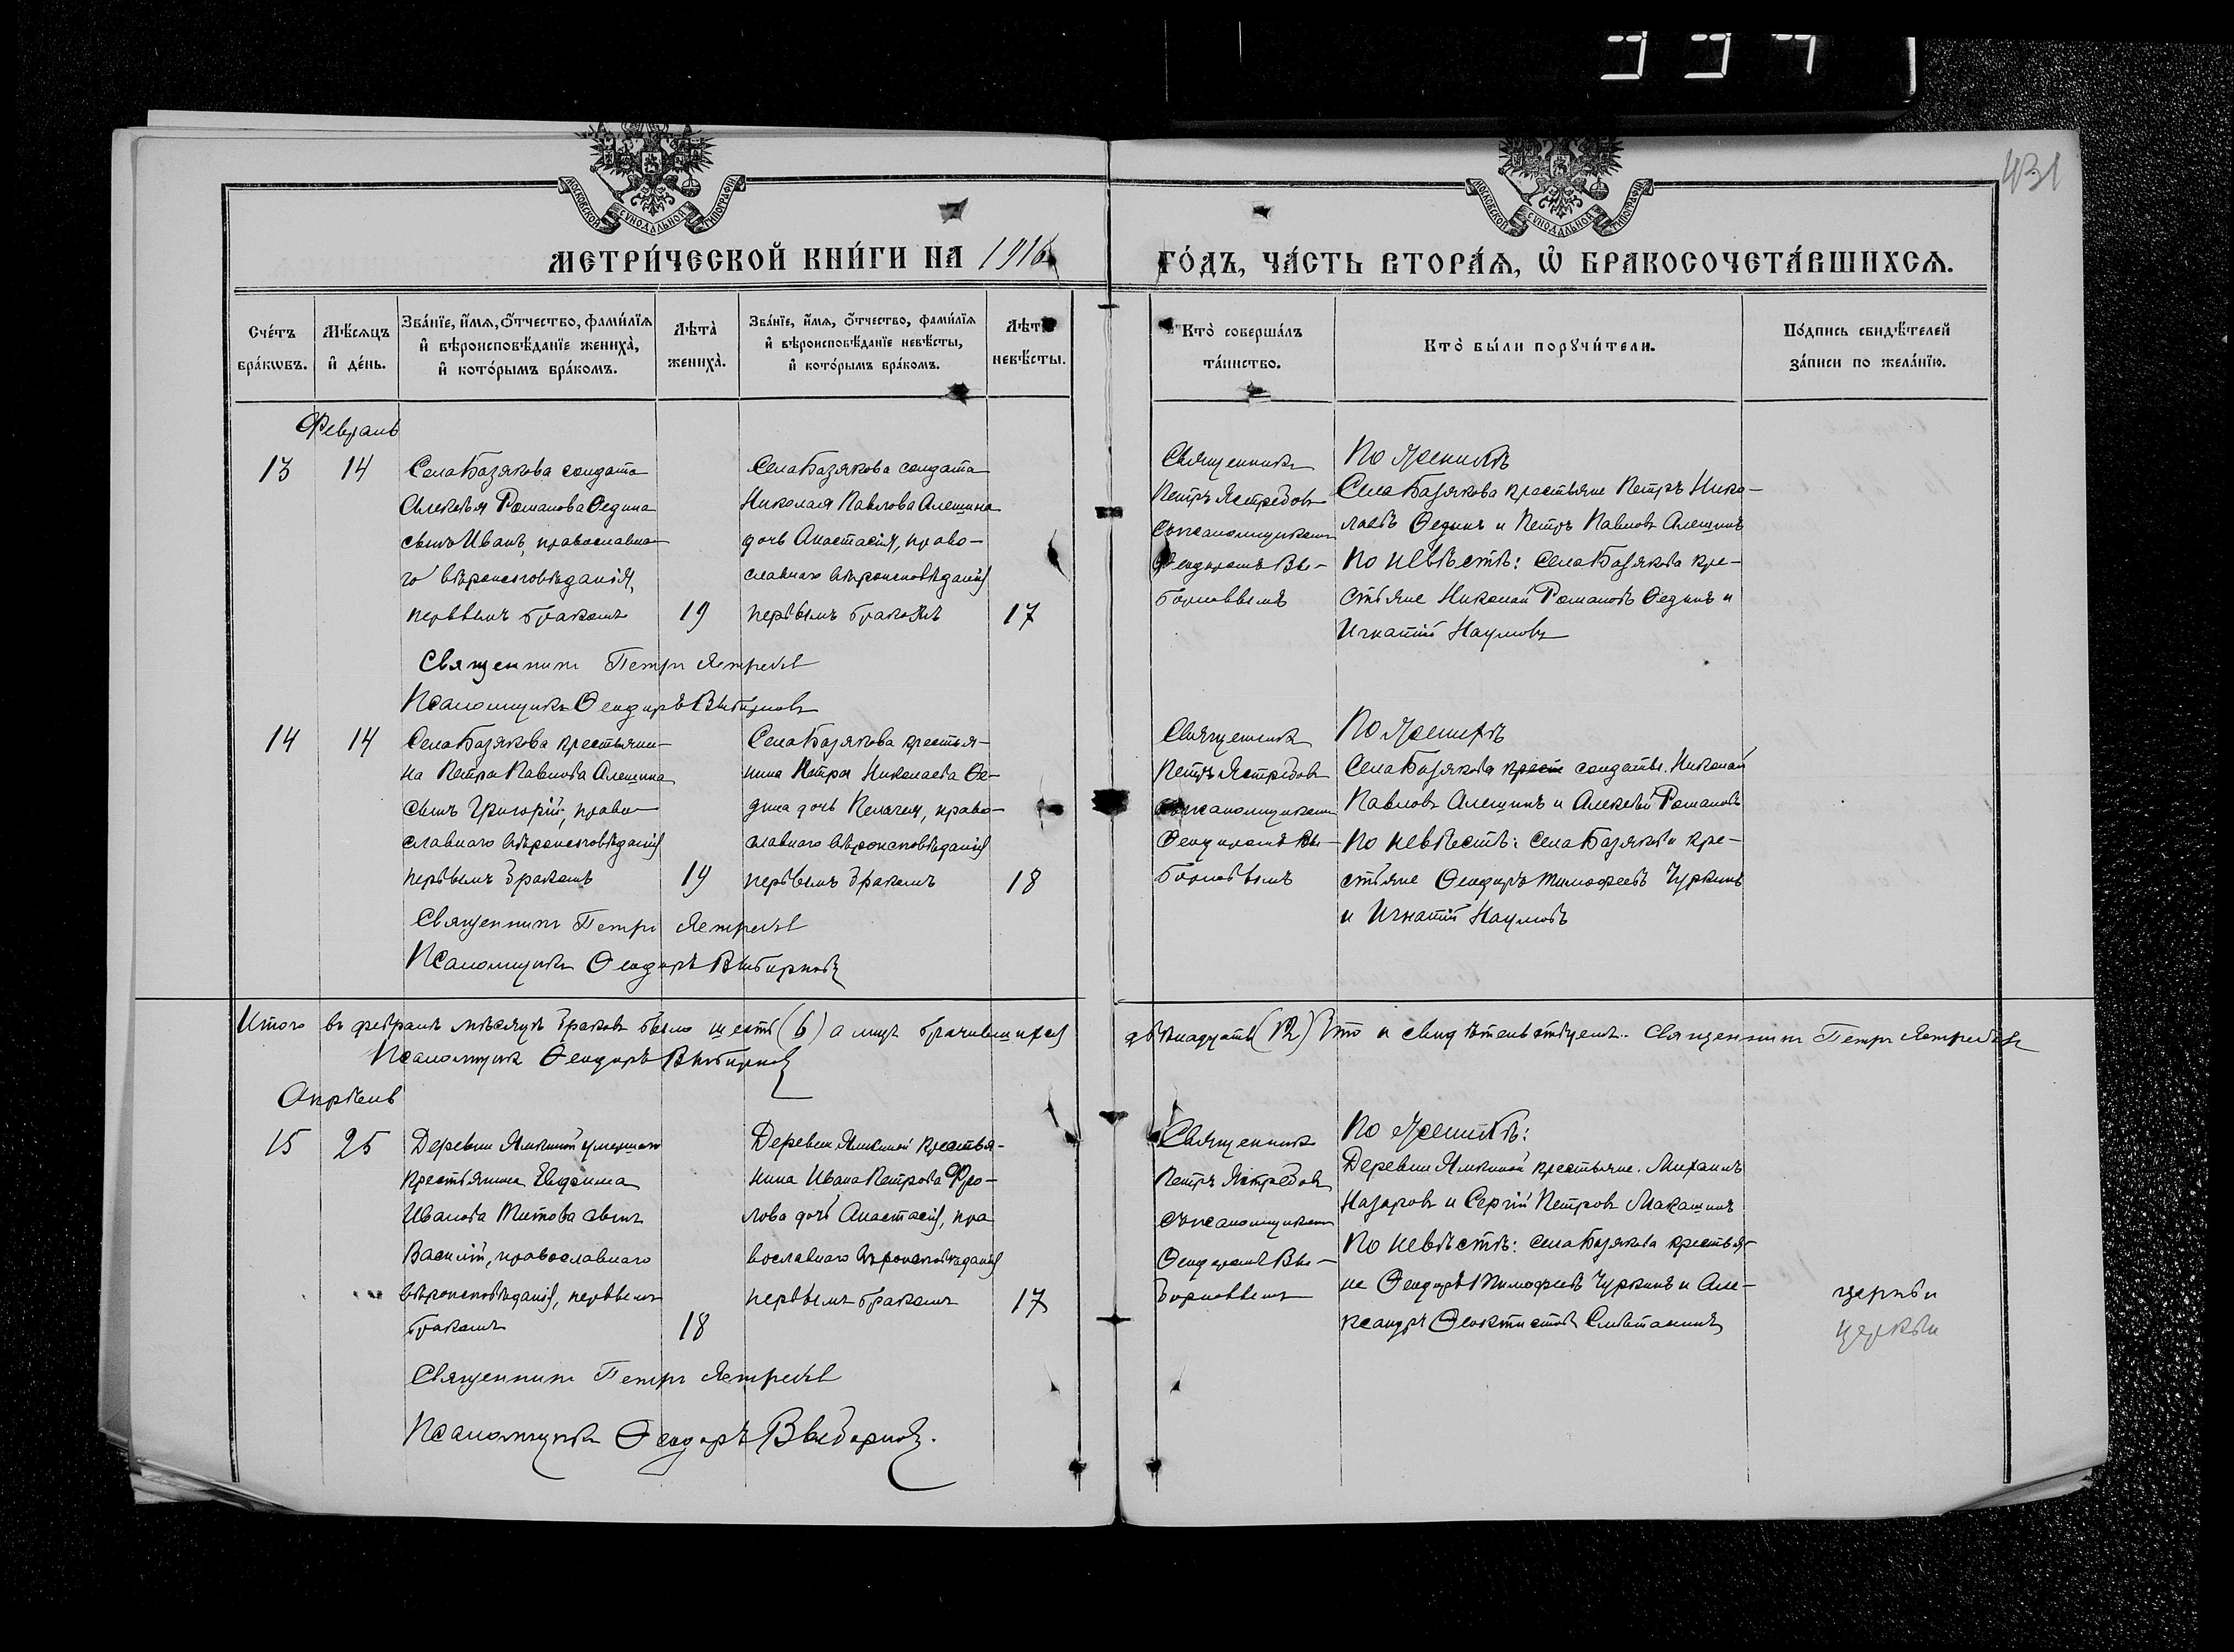 994
431
МОСКОВСКОЙ СѴНОДАЛЬНОЙ ТИПОГРАФІИ
МОСКОВСКОЙ СѴНОДАЛЬНОЙ ТИПОГРАФІИ
МЕТРИ́ЧЕСКОЙ КНИ́ГИ НА 1916 ГО́ДЪ, ЧА́СТЬ ВТОРА́Ѧ, Ѽ БРАКОСОЧЕТА́ВШИХСѦ.
Сче́тъ бра́кѡвъ.
Мѣ́сѧцъ и҆ де́нь.
Зва́нїе, и҆́мѧ, ѻ҆́тчество, фами́лїѧ
и҆ вѣроисповѣ́данїе жениха̀,
и҆ кото́рымъ бра́комъ.
Лѣта̀ жениха̀.
Зва́нїе, и҆́мѧ, ѻ҆́тчество, фами́лїѧ
и҆ вѣроисповѣ́данїе невѣ́сты,
и҆ кото́рымъ бра́комъ.
Лѣта̀ невѣ́сты.
Кто̀ соверша́лъ
та́инство.
Кто̀ бы́ли порꙋчи́тели.
По́дпись свидѣ́телей
за́писи по жела́нїю.
Февраль
13
14
Села Базякова солдата
Алексѣя Романова Ѳедина
сынъ Иванъ, православна-
го вѣроисповѣданія,
первымъ бракомъ
19
Села Базякова солдата
Николая Павлова Алешина
дочь Анастасія, право-
славнаго вѣроисповѣданія
первымъ бракомъ
17
Священникъ
Петръ Ястребовъ
съ псаломщикомъ
Ѳеодоромъ Вы-
борновымъ
По женихѣ
Села Базякова крестьяне Петръ Нико-
лаевъ Ѳединъ и Петръ Павловъ Алешинъ
По невѣстѣ: Села Базякова кре-
стьяне Николай Романовъ Ѳединъ и
Игнатій Наумовъ
Священникъ Петръ Ястребовъ
Псаломщикъ Ѳеодоръ Выборновъ
14
14
Села Базякова крестьяни-
на Петра Павлова Алешина
сынъ Григорій, право-
славнаго вѣроисповѣданія
первымъ бракомъ
19
Села Базякова крестья-
нина Петра Николаева Ѳе-
дина дочь Пелагея, право-
славнаго вѣроисповѣданія
первымъ бракомъ
18
Священникъ
Петръ Ястребовъ
съ псаломщикомъ
Ѳеодоромъ Вы-
борновымъ
По женихѣ
Села Базякова крест солдаты Николай
Павловъ Алешинъ и Алексѣй Романовъ
По невѣстѣ: села Базякова кре-
стьяне Ѳеодоръ Тимофеевъ Чуркинъ
и Игнатій Наумовъ
Священникъ Петръ Ястребовъ
Псаломщикъ Ѳеодоръ Выборновъ
Итого въ февралѣ мѣсяцѣ браковъ было шесть (6) а лицъ брачившихся двѣнадцать (12) Что и свидѣтельствуемъ. Священникъ Петръ Ястребовъ
Псаломщикъ Ѳеодоръ Выборновъ
Апрѣль
15
25
Деревни умершаго
крестьянина Евфима
Иванова Титова сынъ
Василій, православнаго
вѣроисповѣданія, первымъ
бракомъ
18
Деревни крестья-
нина Ивана Петрова Фро-
лова дочь Анастасія, пра
вославнаго вѣроисповѣданія
первымъ бракомъ
17
Священникъ
Петръ Ястребовъ
съ псаломщикомъ
Ѳеодоромъ Вы-
борновымъ
По женихѣ:
Деревни крестьяне Михаилъ
Назаровъ и Сергій Петровъ Макашинъ
По невѣстѣ: села Базякова крестья-
не Ѳеодоръ Тимофеевъ Чуркинъ и Але-
ксандръ Ѳеоктистовъ
церкви
церкви
Священникъ Петръ Ястребовъ
Псаломщикъ Ѳеодоръ Выборновъ.